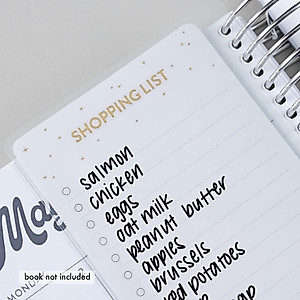 SHOPPING LIST
salmon
chicken
eggs
oat milk
peanut butter
apples
brussels
potatoes
MONDAY
book not included